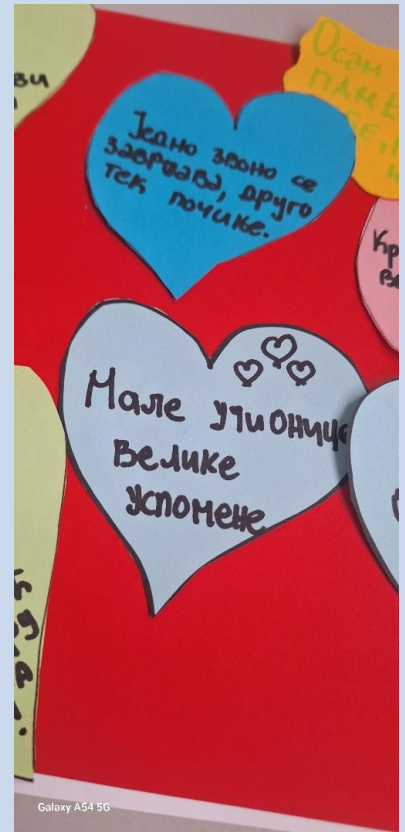 ви
Осам
Једно звоно се
завршава, друго
тек почиње.
Мале учионице
велике
успомене
Galaxy A54 5G